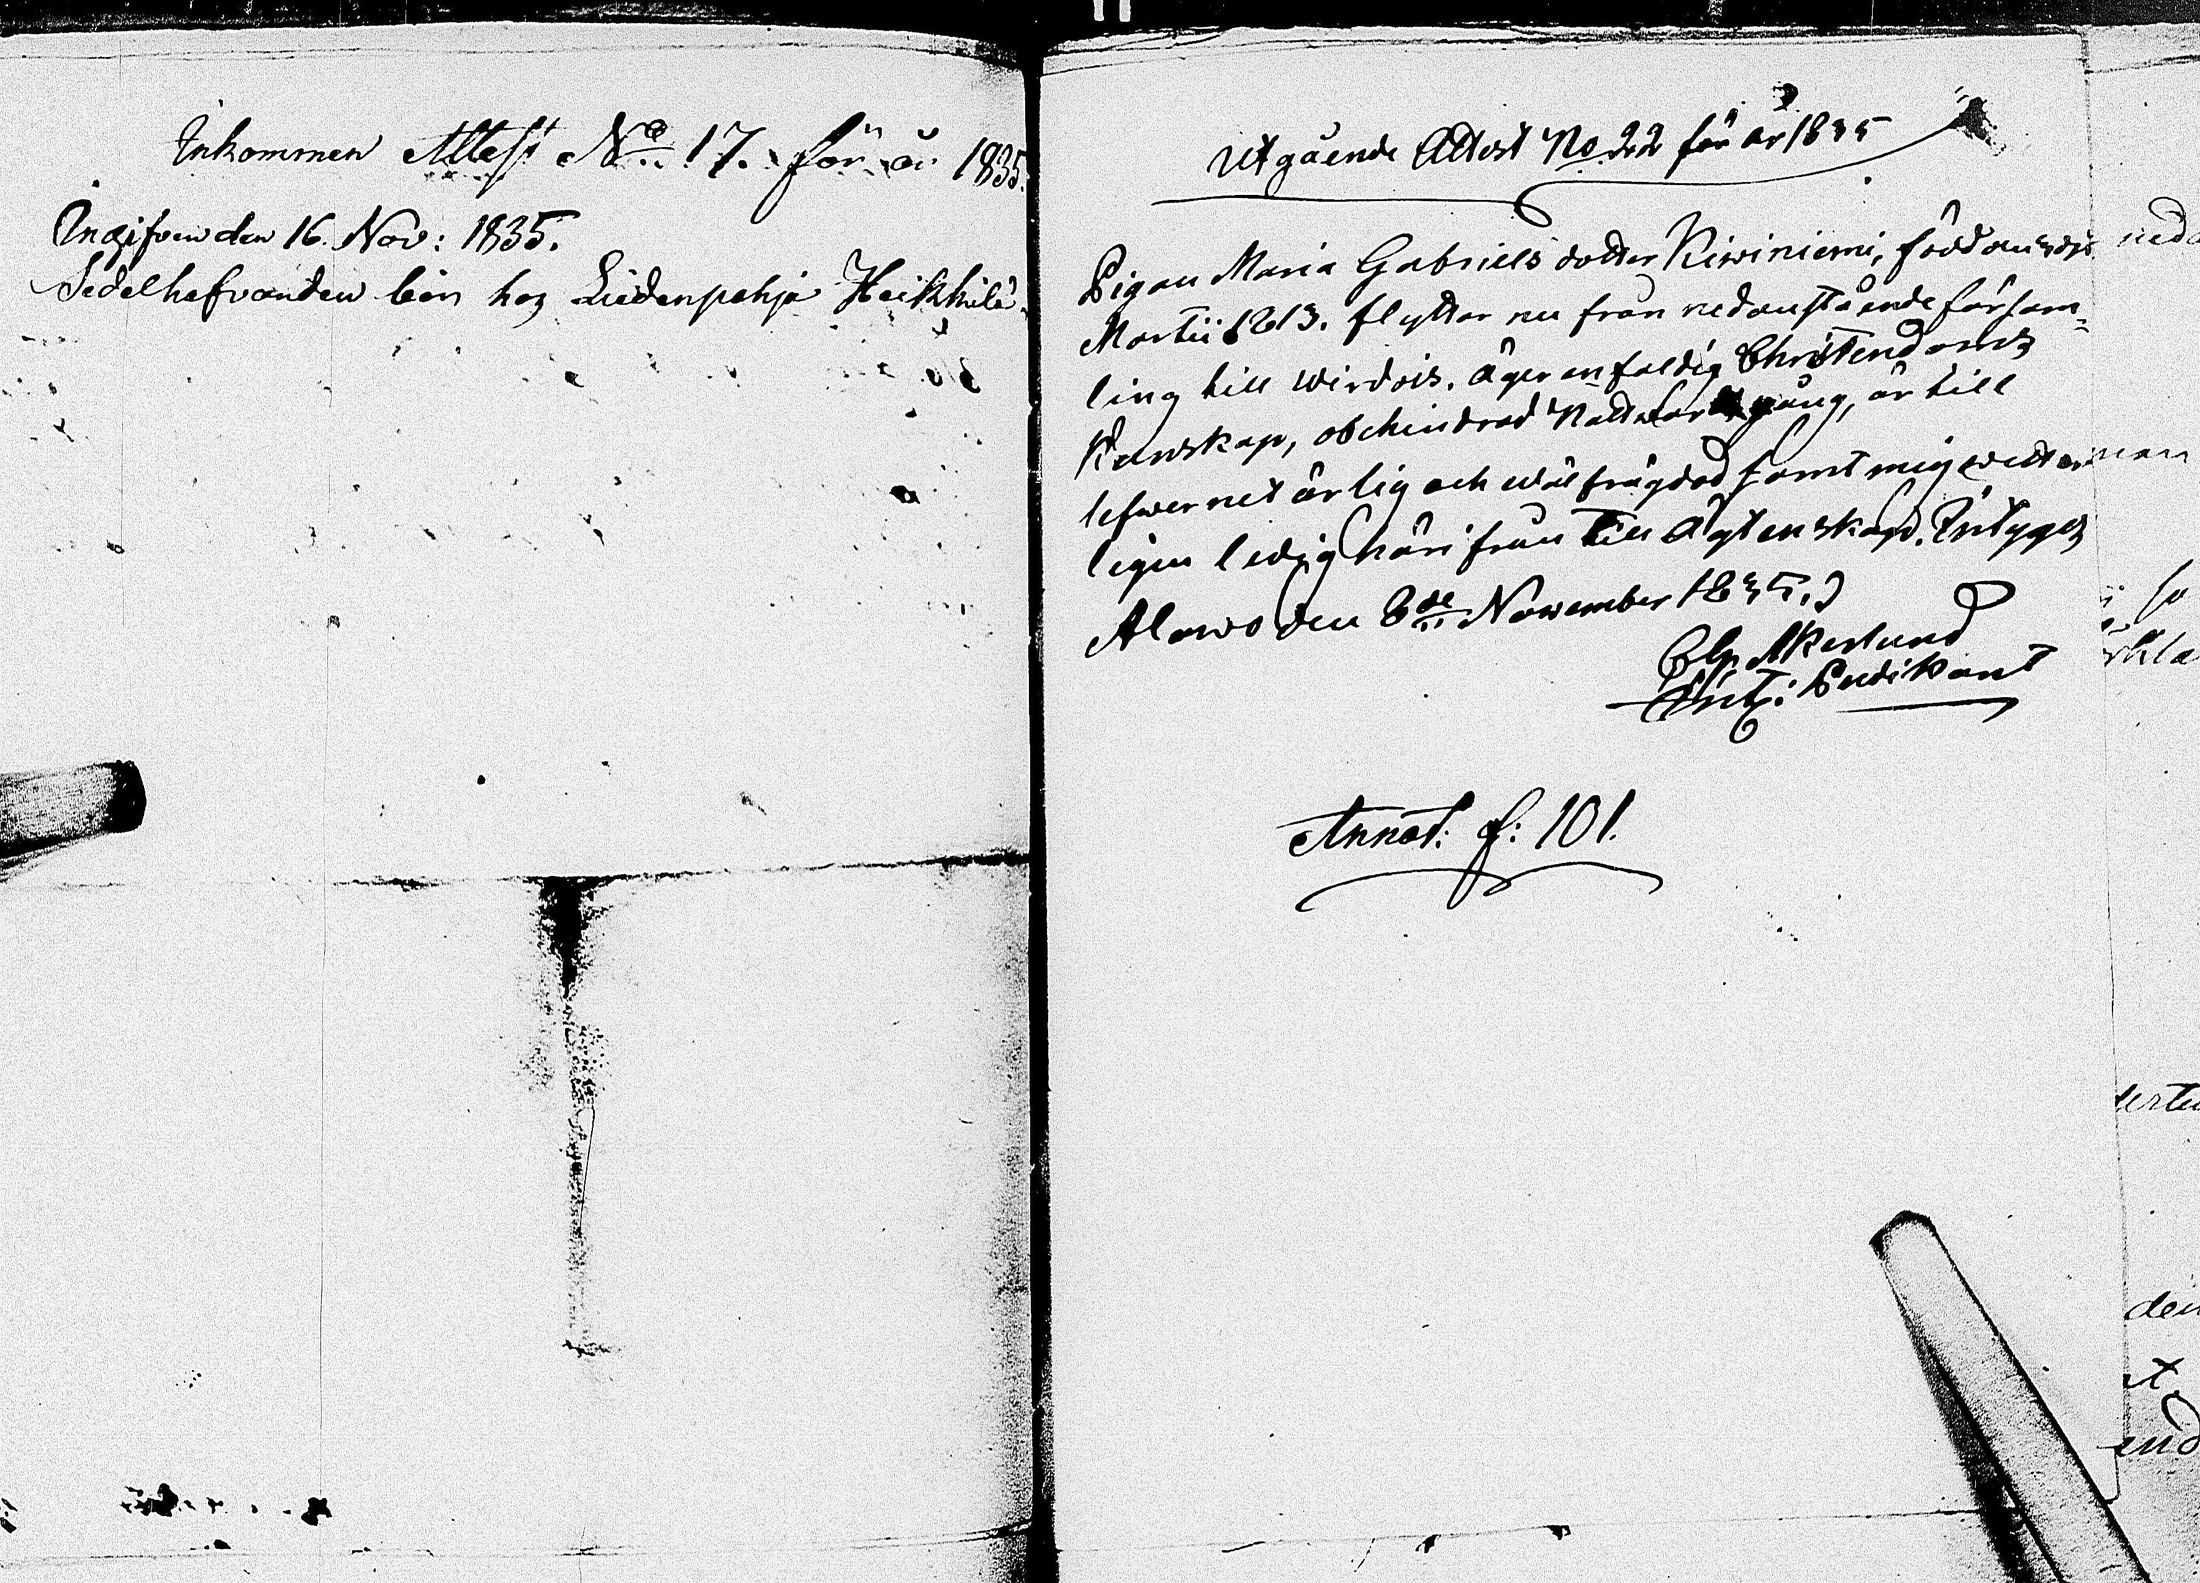 Inkommen Attest No 17. för år 1835.
Ingifven den 16. Nov: 1835.
Sedelhafvanden bor hos Liedenpohja Heikkilä.
Utgående Attest No 22 för år 1835
Pigan Maria Gabriels dotter Kiwiniemi, född den
Martii 1813. flyttar nu från nedanstående försam-
ling till Wirdois. Äger enfaldig Christendoms
Kunskap, obehindrad Nattwardsgång, är till
lefwernet ärlig och wälfrägdad samt mig wetter-
ligen ledig härifrån till Ägtenskap. Intygas
Alawo den 8de November 1835.
Akerlund
Predikant
Annot. f: 101.